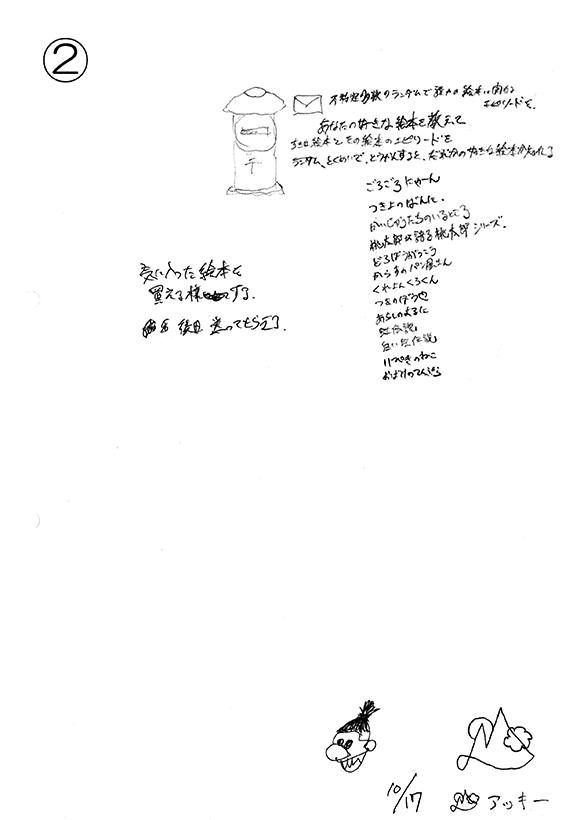 ②
〒
不特定多数のランダムで誰かの絵本に向かう
エピソードを.
あなたの好きな絵本を教えて
好きな絵本とその絵本のエピソードを
ランダム、とくめいで、
だれかの好きな絵本が知れる
ごろごろにゃーん
つきよのばんに.
かいじゅうたちのいるところ
桃太郎が語る桃太郎シリーズ.
どろぼうがっこう
からすのパン屋さん
くれよんくろくん
つきのぼうや
あらしのよるに
虹伝説
白い虹伝説
11ぴきのねこ
おばけのてんぷら
気に入った絵本は
買える様にする.
後日 送ってもらえる.
10/17
アッキー